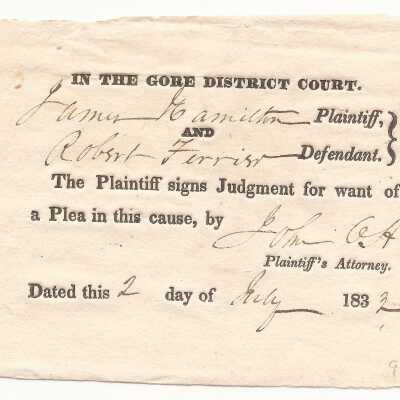 IN THE GORE DISTRICT COURT.
James Hamilton Plaintiff,
AND
Robert Ferrier Defendant.
The Plaintiff signs Judgment for want of
a Plea in this cause, by
John O. H
Plaintiff's Attorney.
Dated this 2 day of July 1833